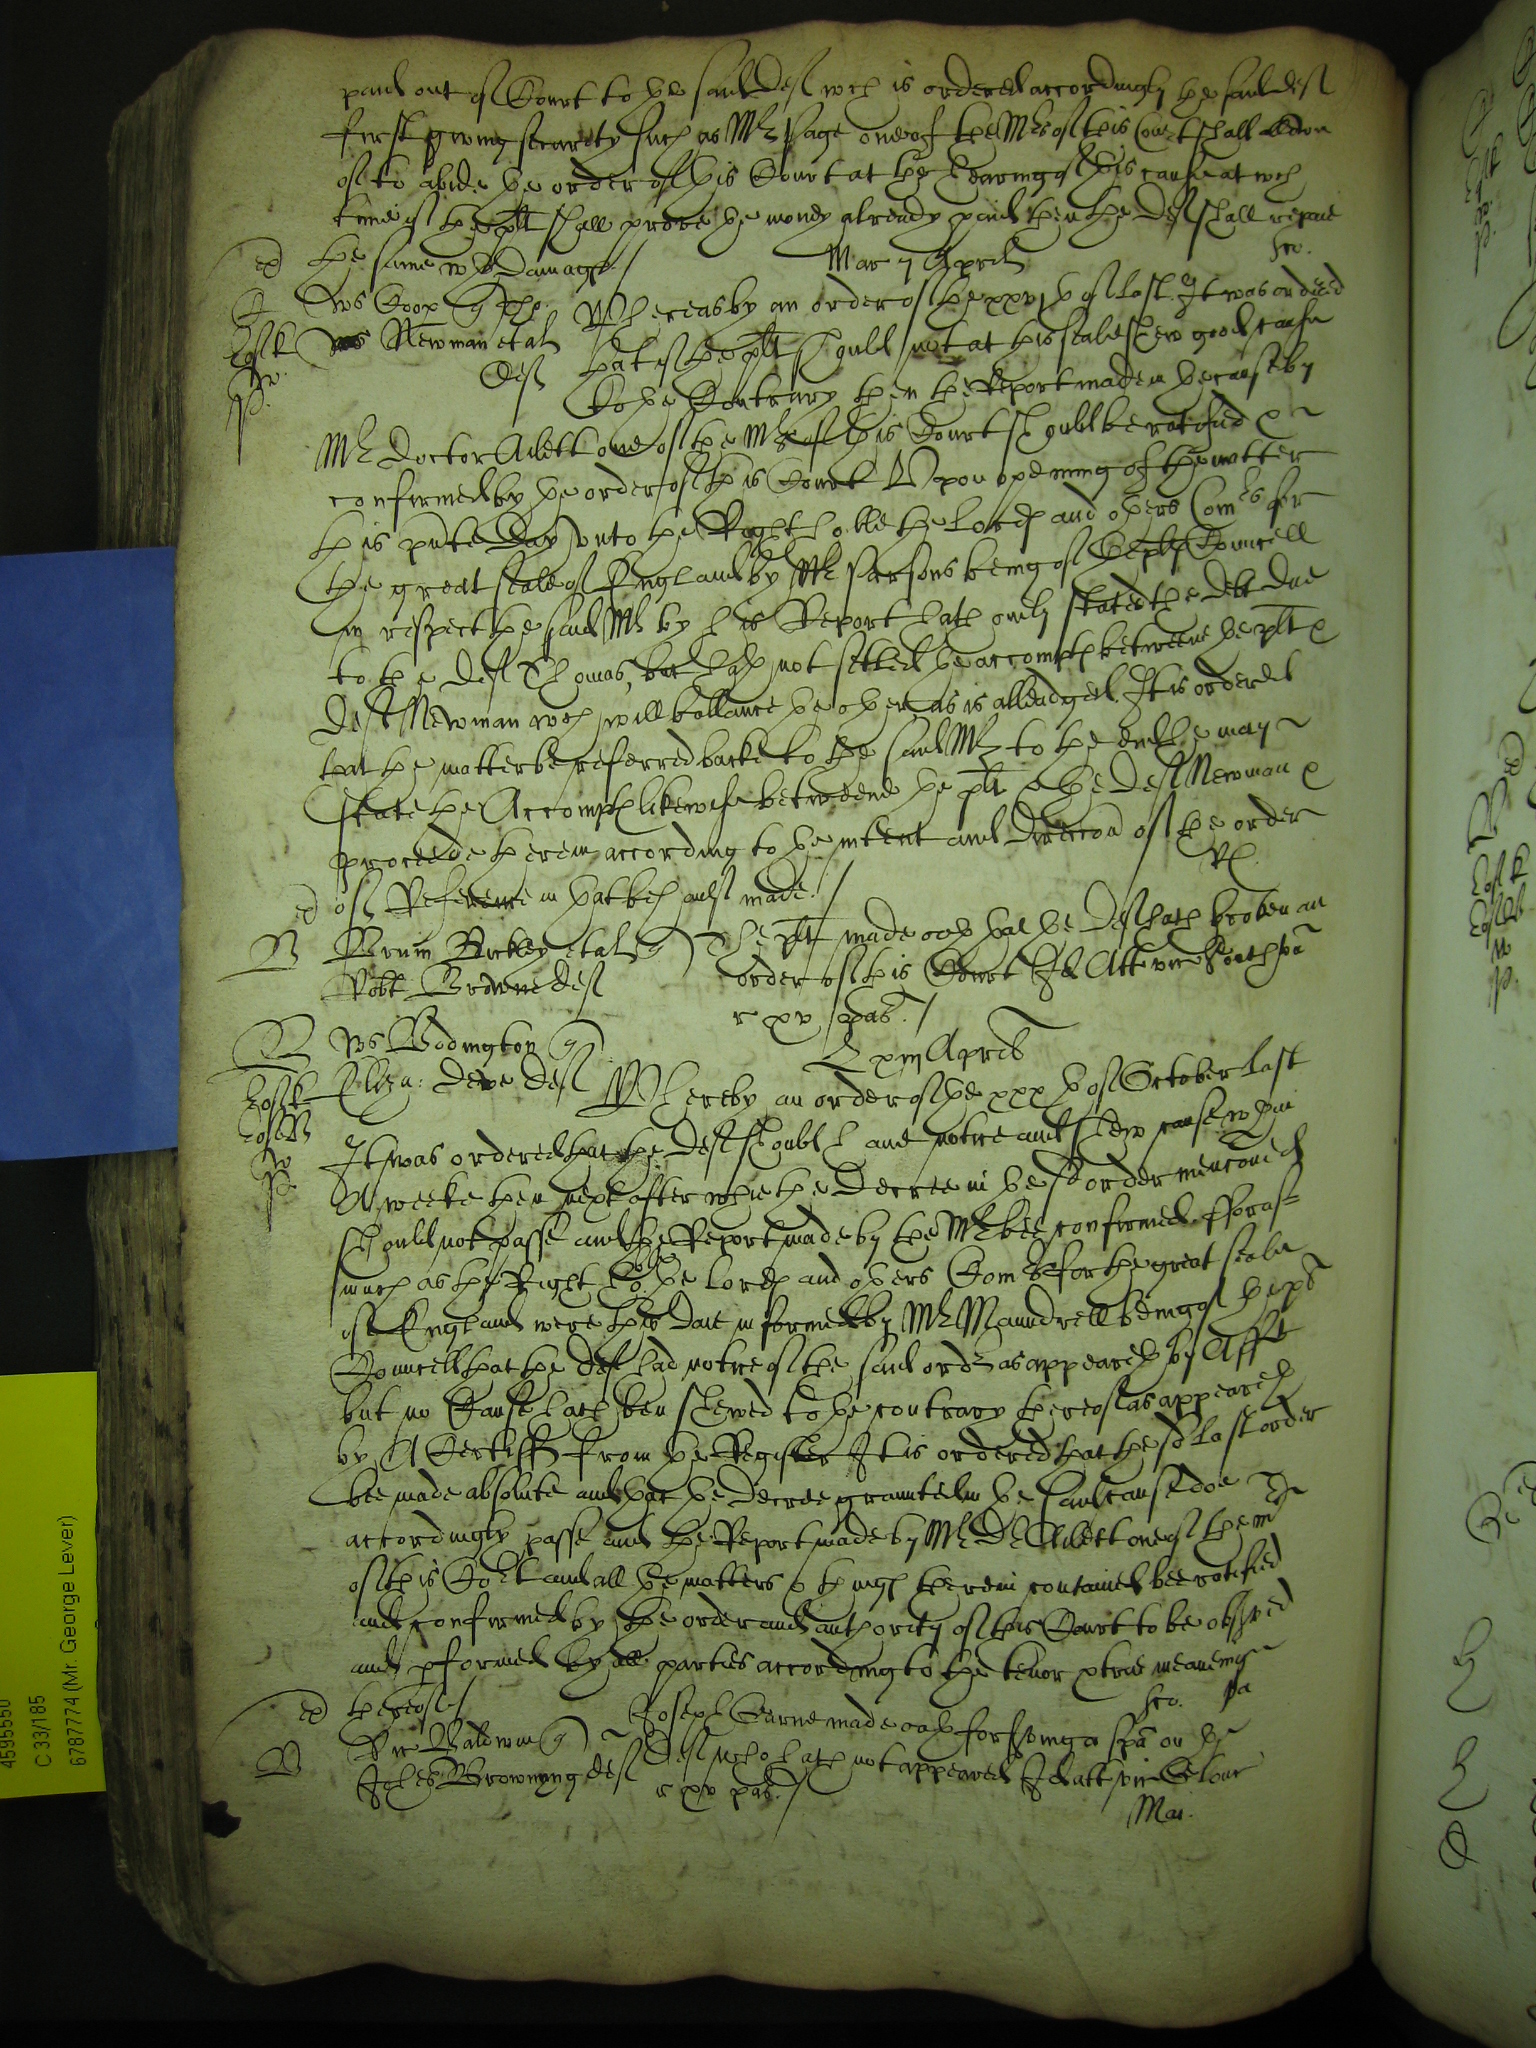 paid out of Court to ye said Deft wch is ordered accordingly he said Deft
first giving security such as Mr Page one of the Mrs of this Court shall allow
of to abide ye order of this Court at the hearing of this cause at wch
time if the plt shall prove ye money already paid then the Deft shall repaie
the same wth Damages /
Mar 7 Aprill
Ws Coop q The
Ws Newman et al
Deft
Whereas by an order of the xxvjth of last It was ordered
that if the plt should not at this seale shew good cause
to ye Contrary then the Report made in ye cause by
Mr Doctor Ailett one of the Mrs of this Court should be ratified &
confirmed by ye order of this Court Upon opening of the matter
this pnte Day unto the Right hoble the Lords and others Comrs for
the great seale of England by Mr Parsons being of the plts Councell
in respect the said Mr by his Report hath only stated the debt due
to the Deft Thomas, but hath not setled ye accompts betweene ye plt &
Deft Newman wch will ballance ye other as is alleadged. It is ordered
that the matter be referred backe to the said Mr to the end he may
state the Accompts likewise betweene ye plt & the Deft Newman &
proceede therein according to ye intent and direccon of the order
of Reference in that behalf made /
Robt Browne Deft
The plt made oath that ye Deft hath broken an
order of this Court Id Att vic
r xv pas /
Ws Bodington q
Eliza: Deft
xiij Aprilis
Whereby an order of ye xxxth of October last
It was ordered that the Deft should have notice and shew cause wthin
A weeke then next after why the Decree in ye sd order menconed
should not passe and the Report made by the Mr bee confirmed. fforas=
much as the Right hoble the Lords and others Comrs for the great seale
of England were this Daie informed by Mr Maundrell being of the plts
Councell that the Deft had notice of the said order as appeareth by Afft
but no Cause hath ben shewed to ye contrary thereof as appeareth
by A Certifft from ye Register It is ordered that the sd last order
bee made absolute and that ye Decree graunted in ye said cause doe
accordingly passe and the Report made by Mr Dr Ailett one of the Mrs
of this Court and all ye matters & things therein contained bee ratified
and confirmed by the order and authority of this Court to be observed
and pformed by all parties according to the tenor & true meaneing
thereof /
Baldwin q
Browning Deft
Joseph made oath for serving a spa on ye
Deft who hath not appeared Id att vic
r xv pas /
Mar.
4595550
C 33/185
6787774 (Mr. George Lever)